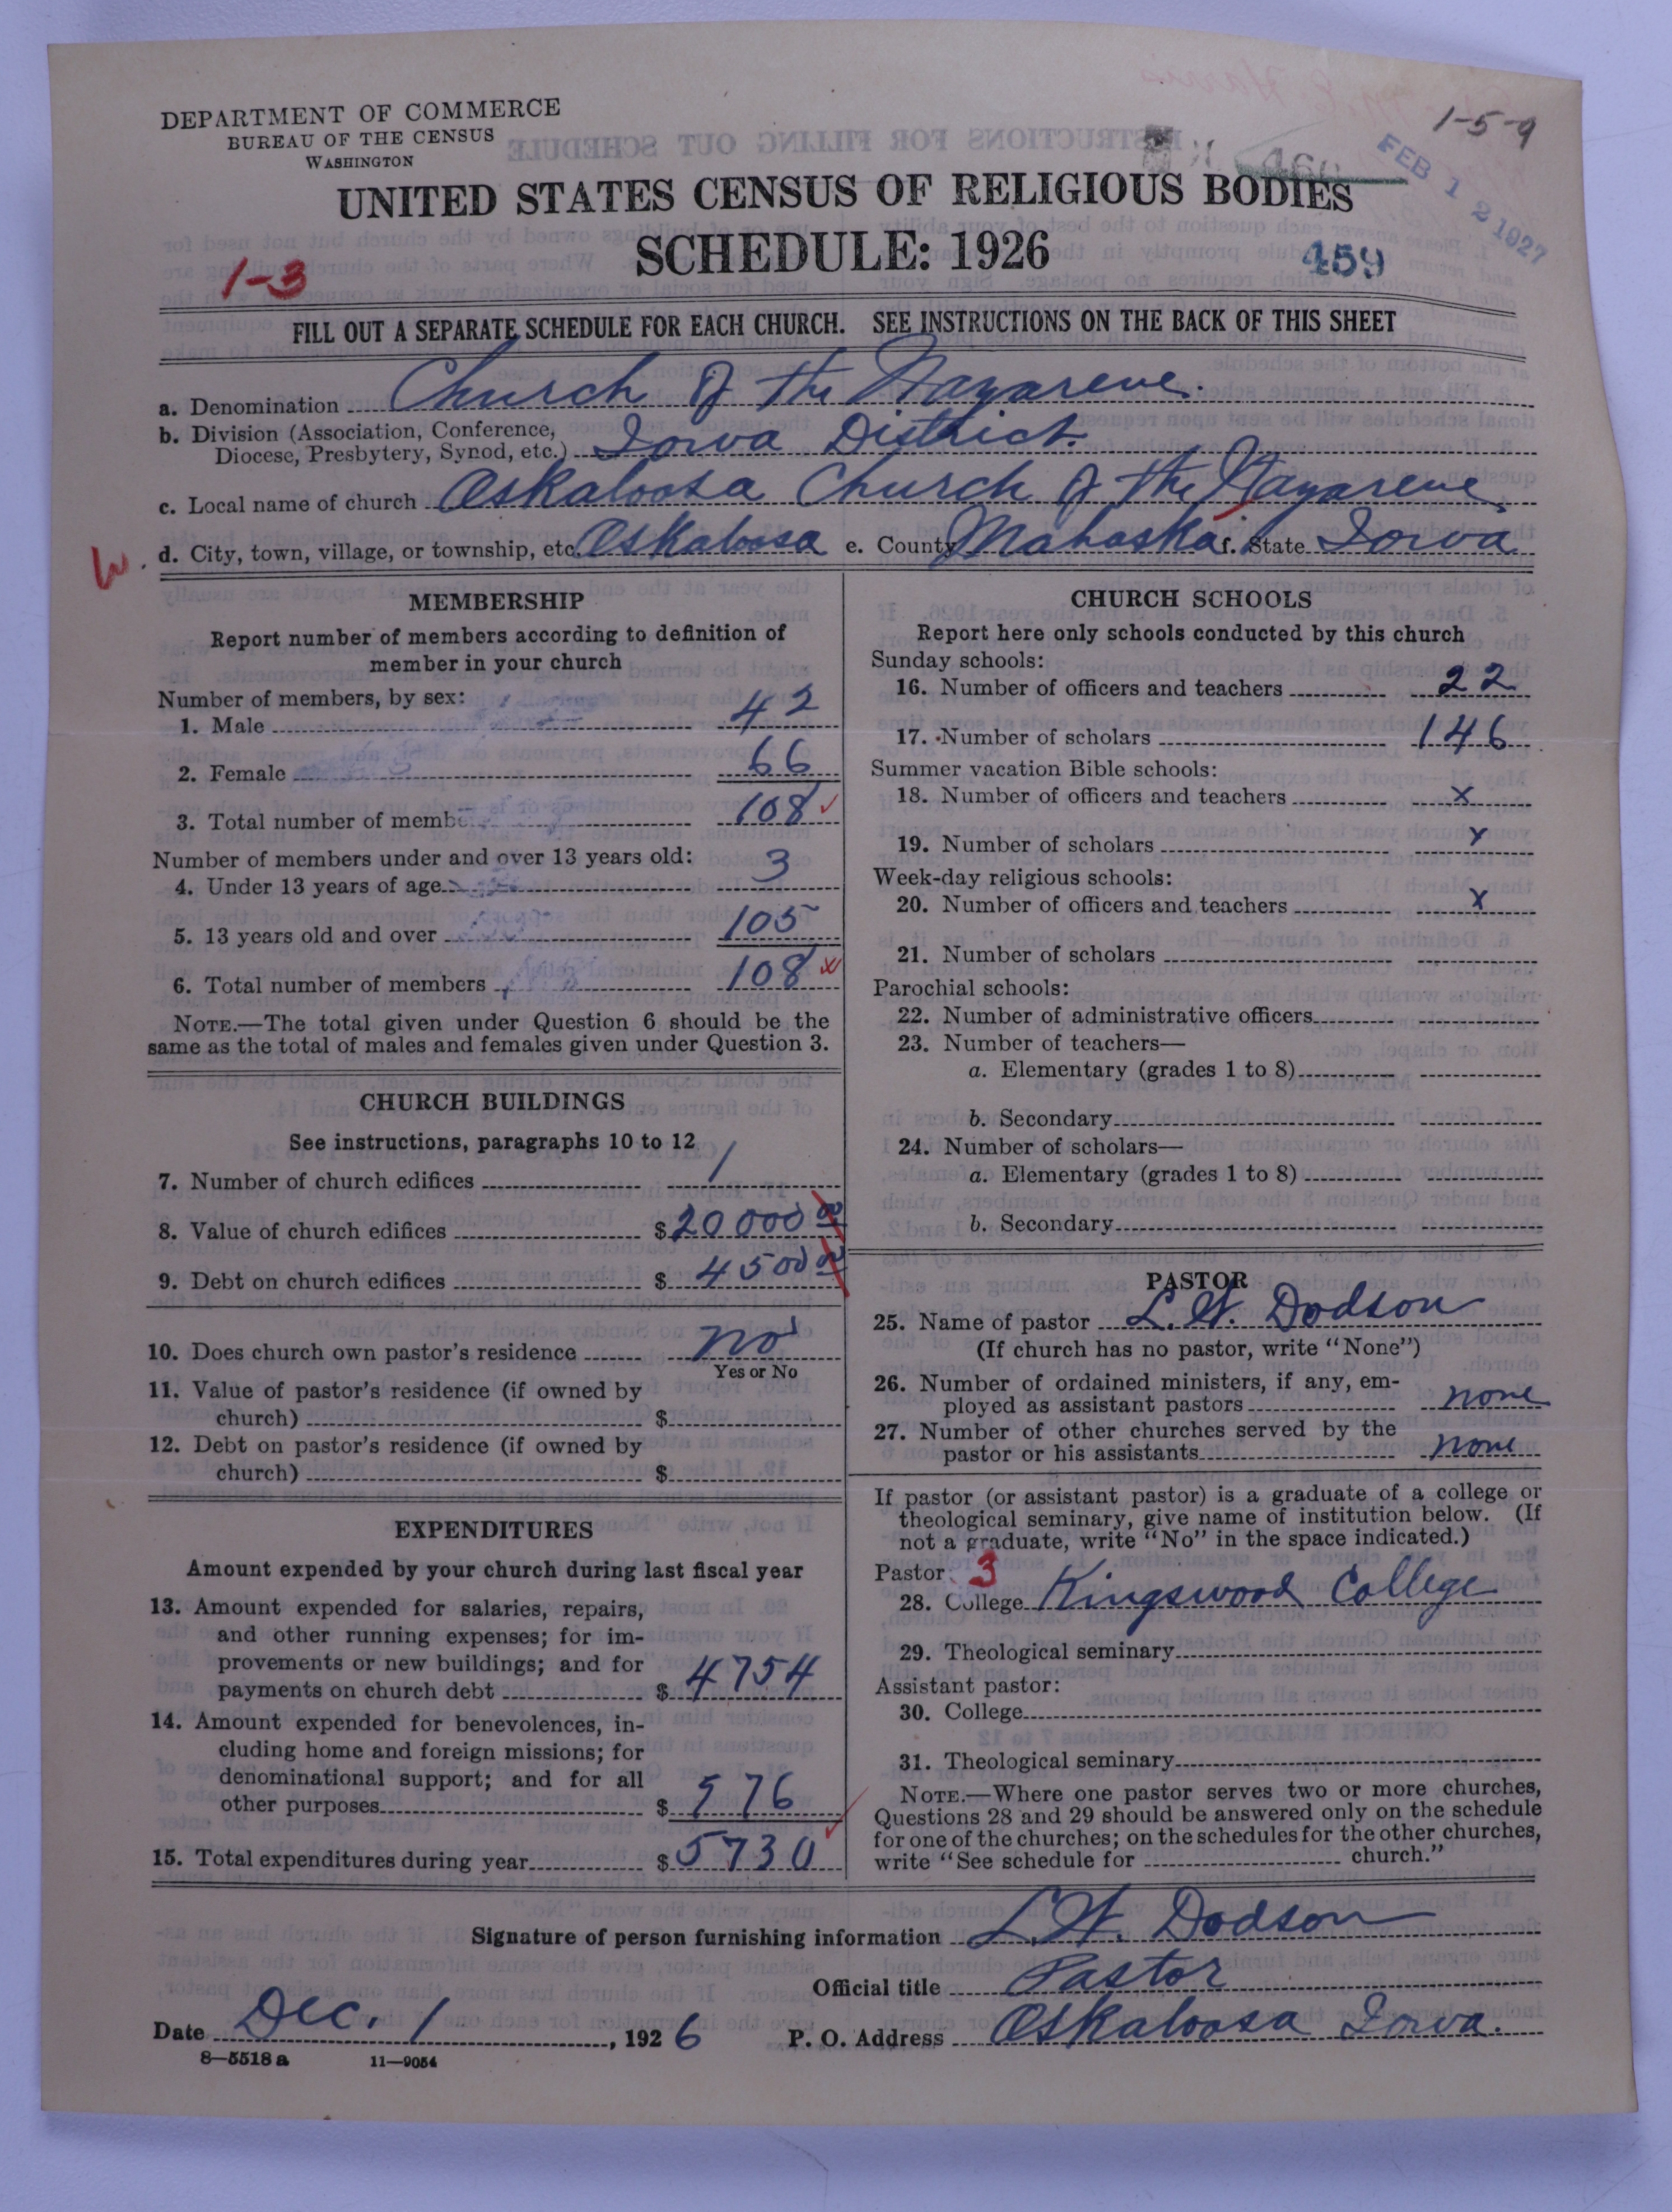 DEPARTMENT OF COMMERCE
BUREAU OF THE CENSUS
WASHINGTON
1-5-9
FEB 12 1927
UNITED STATES CENSUS OF RELIGIOUS BODIES
SCHEDULE: 1926
459
1-3
FILL OUT A SEPARATE SCHEDULE FOR EACH CHURCH. SEE INSTRUCTIONS ON THE BACK OF THIS SHEET
a. Denomination Church of the Nazarene.
b. Division (Association, Conference,
Diocese, Presbytery, Synod, etc.) Iowa District.
c. Local name of church Oskaloosa Church of the Nazarene
d. City, town, village, or township, etc. Oskaloosa e. County Mahaska f. State Iowa.
MEMBERSHIP
Report number of members according to definition of
member in your church
Number of members, by sex:
1. Male 42
2. Female 66
3. Total number of membe 108
Number of members under and over 13 years old:
4. Under 13 years of age 3
5. 13 years old and over 105
6. Total number of members 108
NOTE.—The total given under Question 6 should be the
same as the total of males and females given under Question 3.
CHURCH BUILDINGS
See instructions, paragraphs 10 to 12
7. Number of church edifices 1
8. Value of church edifices $20000 00
9. Debt on church edifices $ 4500 00
10. Does church own pastor's residence no
Yes or No
11. Value of pastor's residence (if owned by
church) $
12. Debt on pastor's residence (if owned by
church) $
EXPENDITURES
Amount expended by your church during last fiscal year
13. Amount expended for salaries, repairs,
and other running expenses; for im-
provements or new buildings; and for
payments on church debt $ 4754
14. Amount expended for benevolences, in-
cluding home and foreign missions; for
denominational support; and for all
other purposes $ 976
15. Total expenditures during year $ 5730
CHURCH SCHOOLS
Report here only schools conducted by this church
Sunday schools:
16. Number of officers and teachers 22
17. Number of scholars 146
Summer vacation Bible schools:
18. Number of officers and teachers x
19. Number of scholars x
Week-day religious schools:
20. Number of officers and teachers x
21. Number of scholars
Parochial schools:
22. Number of administrative officers
23. Number of teachers—
a. Elementary (grades 1 to 8)
b. Secondary
24. Number of scholars—
a. Elementary (grades 1 to 8)
b. Secondary
PASTOR
25. Name of pastor L. W. Dodson
(If church has no pastor, write "None")
26. Number of ordained ministers, if any, em-
ployed as assistant pastors none
27. Number of other churches served by the
pastor or his assistants none
If pastor (or assistant pastor) is a graduate of a college or
theological seminary, give name of institution below. (If
not a graduate, write "No" in the space indicated.)
Pastor: 3
28. College Kingswood College
29. Theological seminary
Assistant pastor:
30. College
31. Theological seminary
NOTE.—Where one pastor serves two or more churches,
Questions 28 and 29 should be answered only on the schedule
for one of the churches; on the schedules for the other churches,
write "See schedule for church."
Signature of person furnishing information L. W. Dodson
Official title Pastor
Date Dec. 1, 1926 P. O. Address Oskaloosa Iowa.
8—5518 a 11—9054